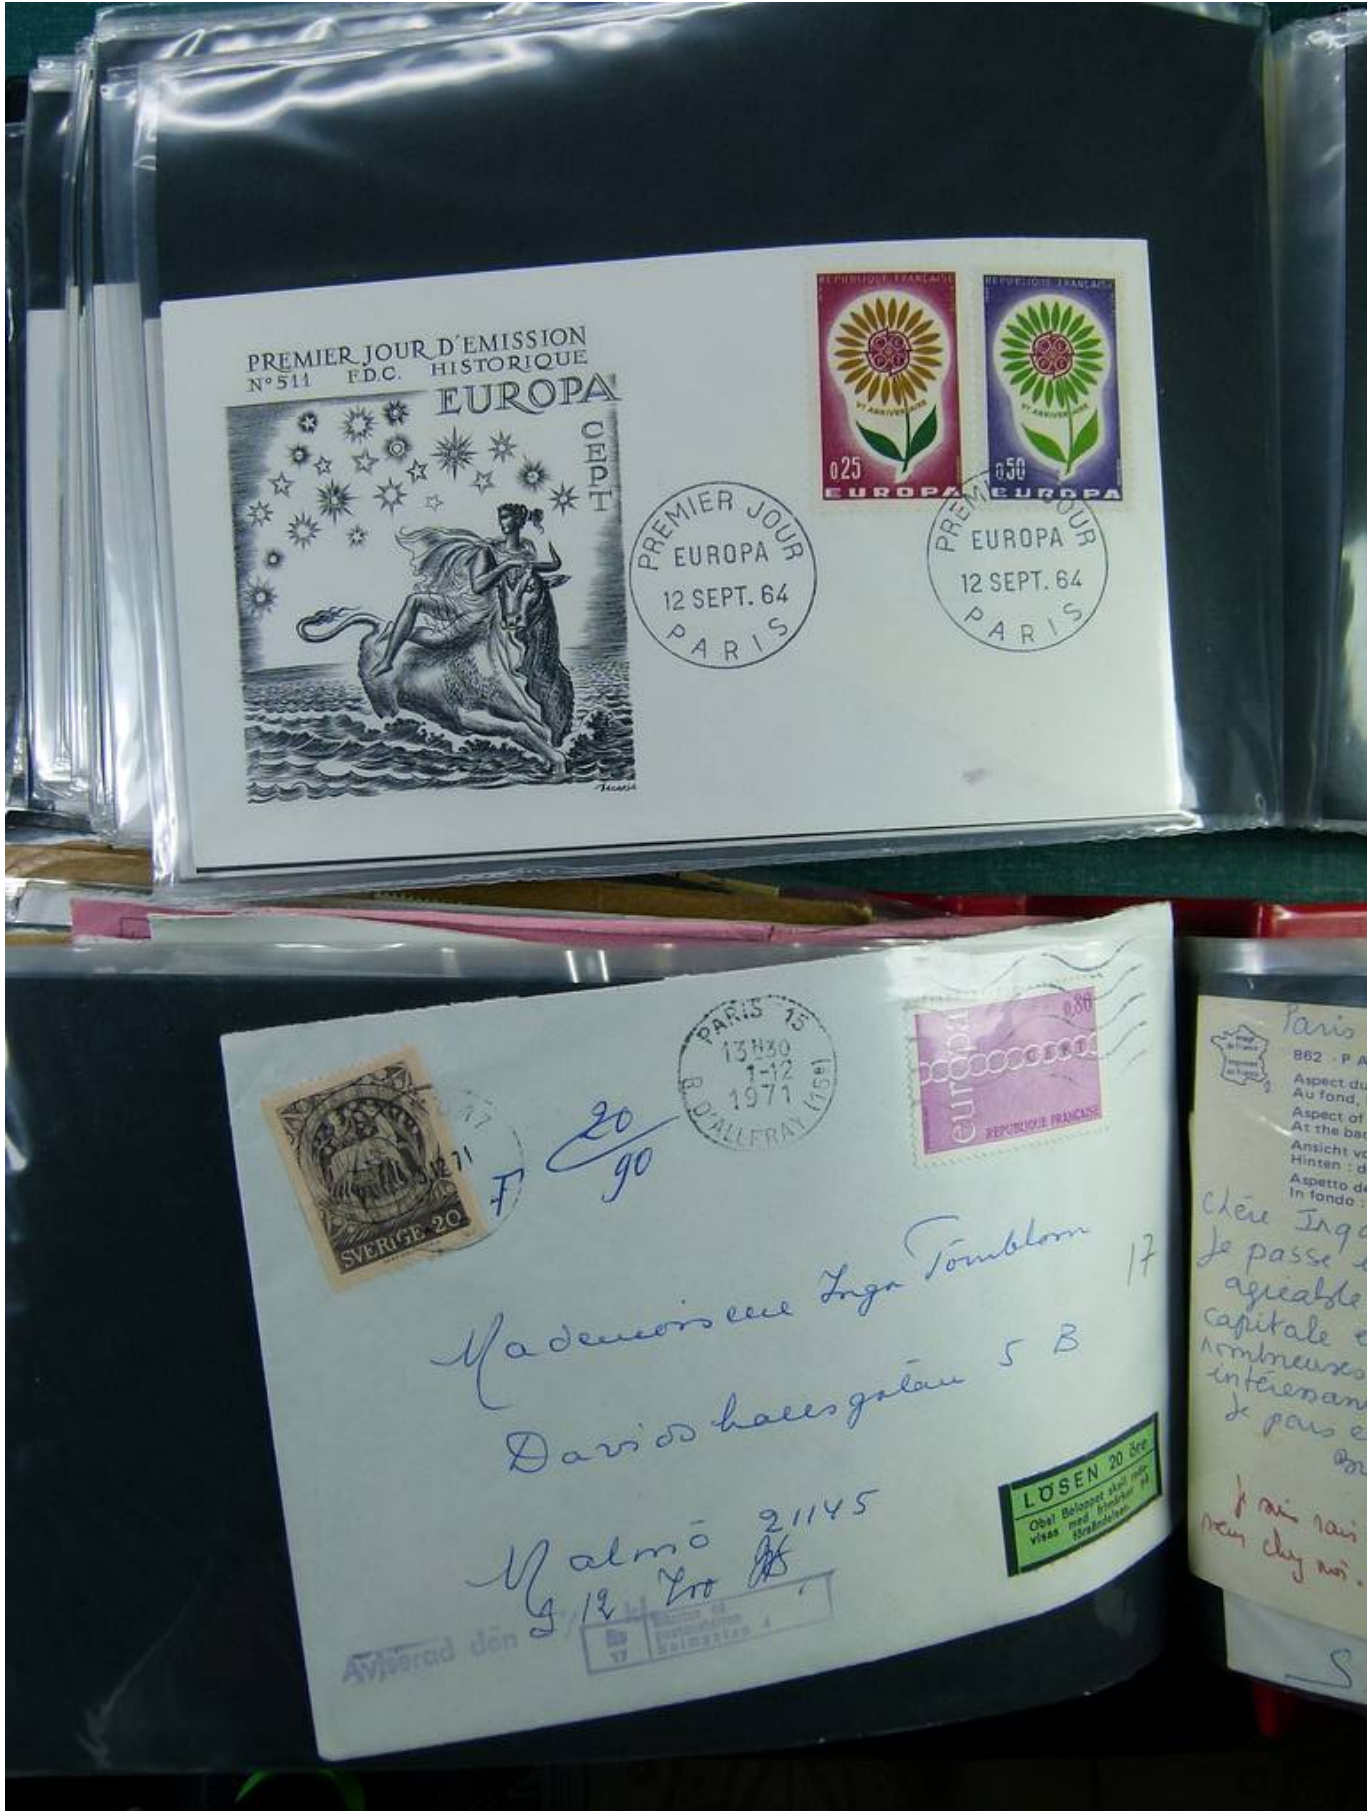 PREMIER JOUR D'EMISSION
N° 511 F.D.C. HISTORIQUE
EUROPA
CEPT
REPUBLIQUE FRANÇAISE
VE ANNIVERSAIRE
0,25
EUROPA
REPUBLIQUE FRANÇAISE
VE ANNIVERSAIRE
0,50
EUROPA
PREMIER JOUR
EUROPA
12 SEPT. 64
PARIS
PREMIER JOUR
EUROPA
12 SEPT. 64
PARIS
PARIS 15
13H30
1-12
1971
R. D'ALLERAY (15e)
0,80
europa
CEPT
REPUBLIQUE FRANÇAISE
12 71
SVERIGE 20
T 20
90
Mademoiselle Inga Törnblom
17
Davidshallsgatan 5 B
Malmö 21145
LÖSEN 20 öre
Obs! Beloppet skall redo-
visas med frimärken på
försändelsen.
9 12
Aviserad den
17
Paris
862 - P A
Aspect du
Au fond,
Aspect of
At the bac
Ansicht vo
Hinten : d
Aspetto de
In fondo :
Chère Inga
Je passe
agréable
capitale
nombreuses
intéressan
Je pars
Je suis
chez moi.
S